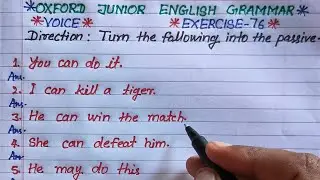 *OXFORD JUNIOR ENGLISH GRAMMAR*
*VOICE* *EXERCISE-76*
Direction: Turn the following into the passive.
1. You can do it.
Ans.
2. I can kill a tiger.
Ans.
3. He can win the match.
Ans.
4. She can defeat him.
Ans.
5. He may do this